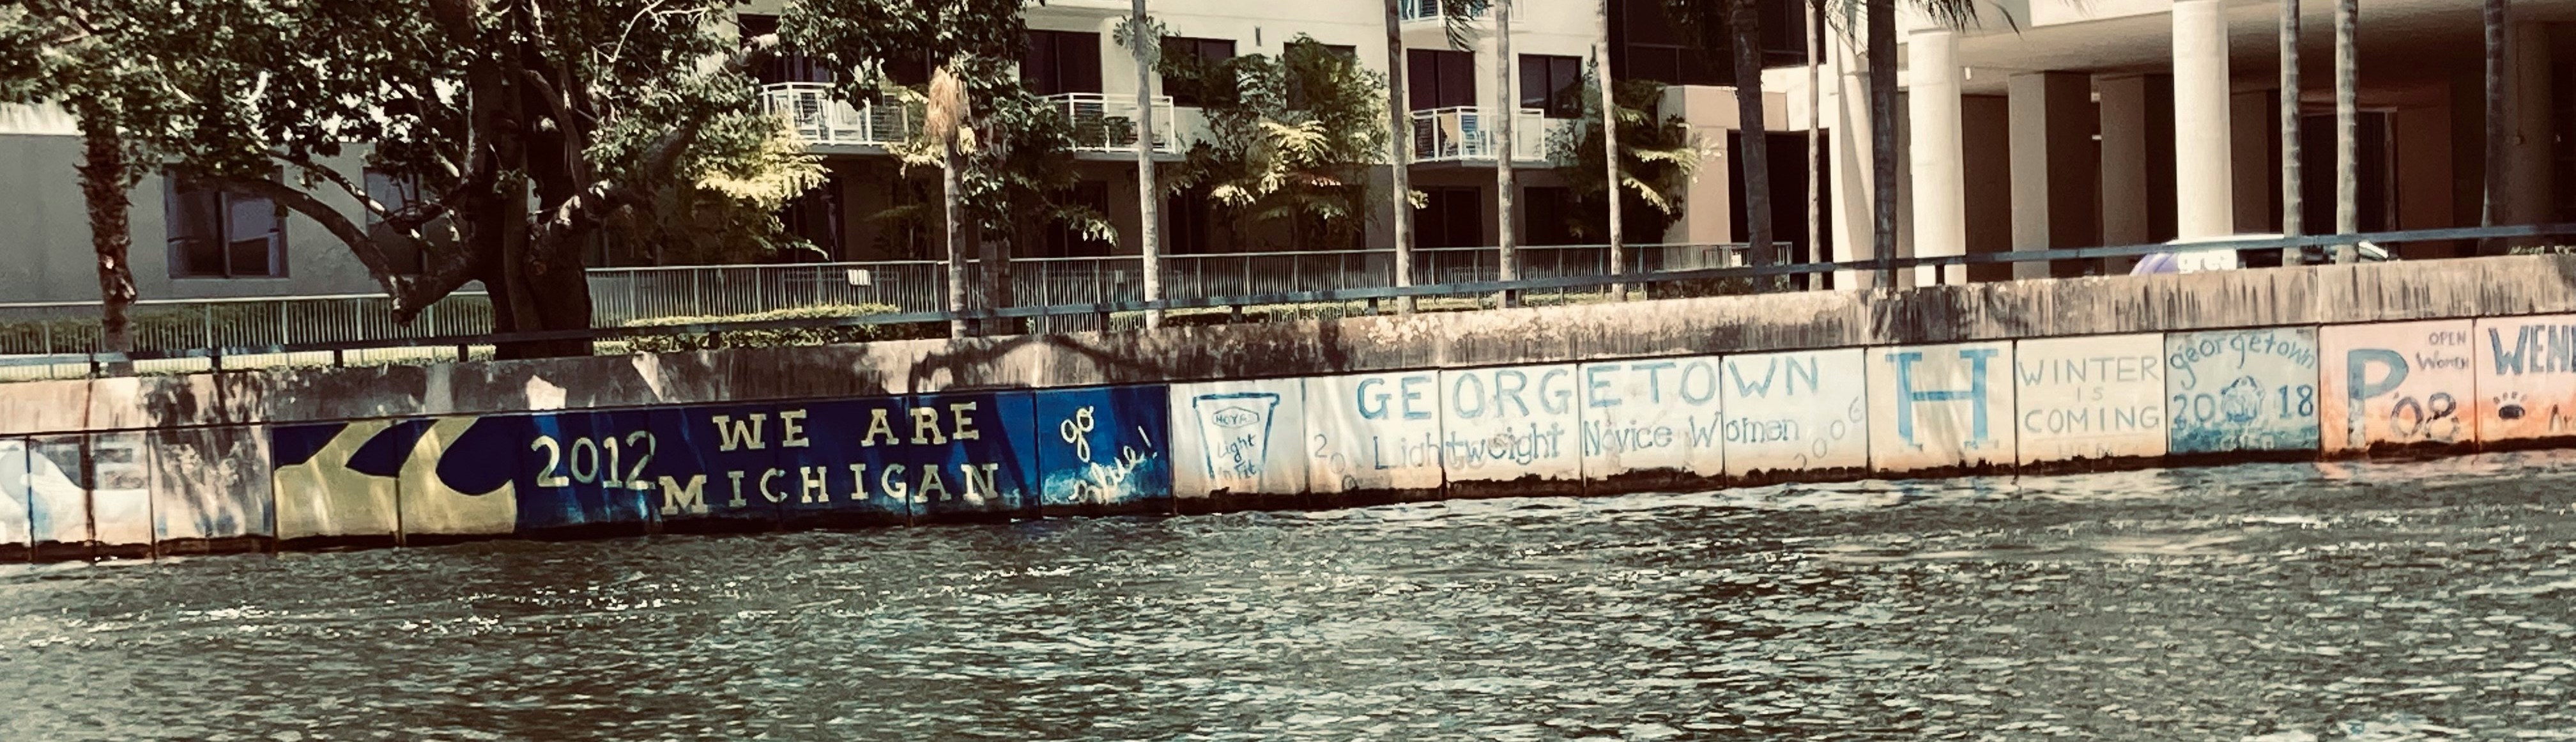 2012
WE ARE
MICHIGAN
go
blue!
HOYA
Light
'n Fit
GEORGETOWN
2006 Lightweight Novice Women 2006
H
WINTER
IS
COMING
georgetown
2018
OPEN
Women
P 08